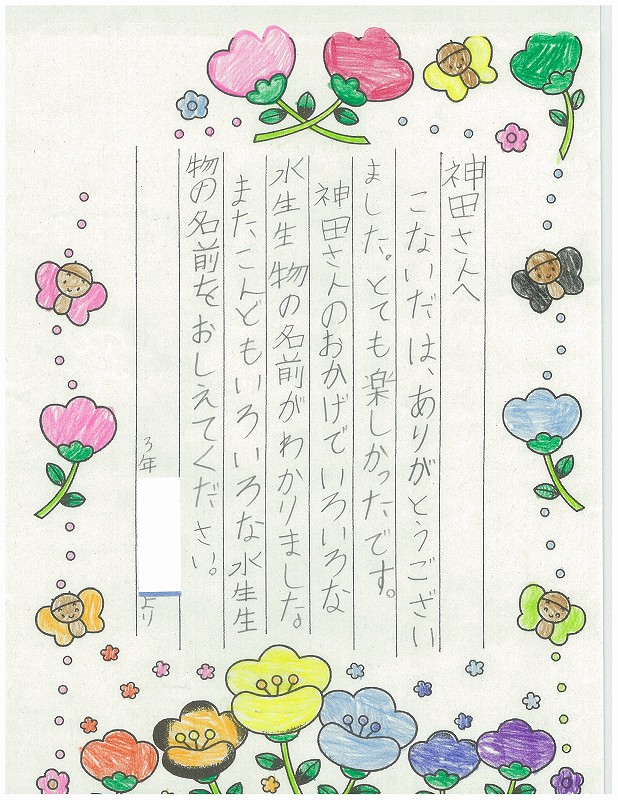 神田さんへ
こないだは、ありがとうござい
ました。とても楽しかったです。
神田さんのおかげでいろいろな
水生生物の名前がわかりました。
また、こんどもいろいろな水生生
物の名前をおしえてください。
3年
より